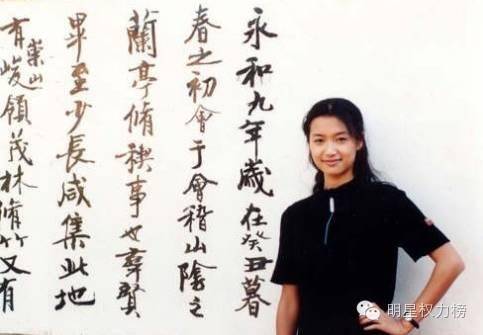 永和九年歲在癸丑暮
春之初會于會稽山陰之
蘭亭脩稧事也群賢
畢至少長咸集此地
有崇山峻領茂林脩竹又有
明星权力榜